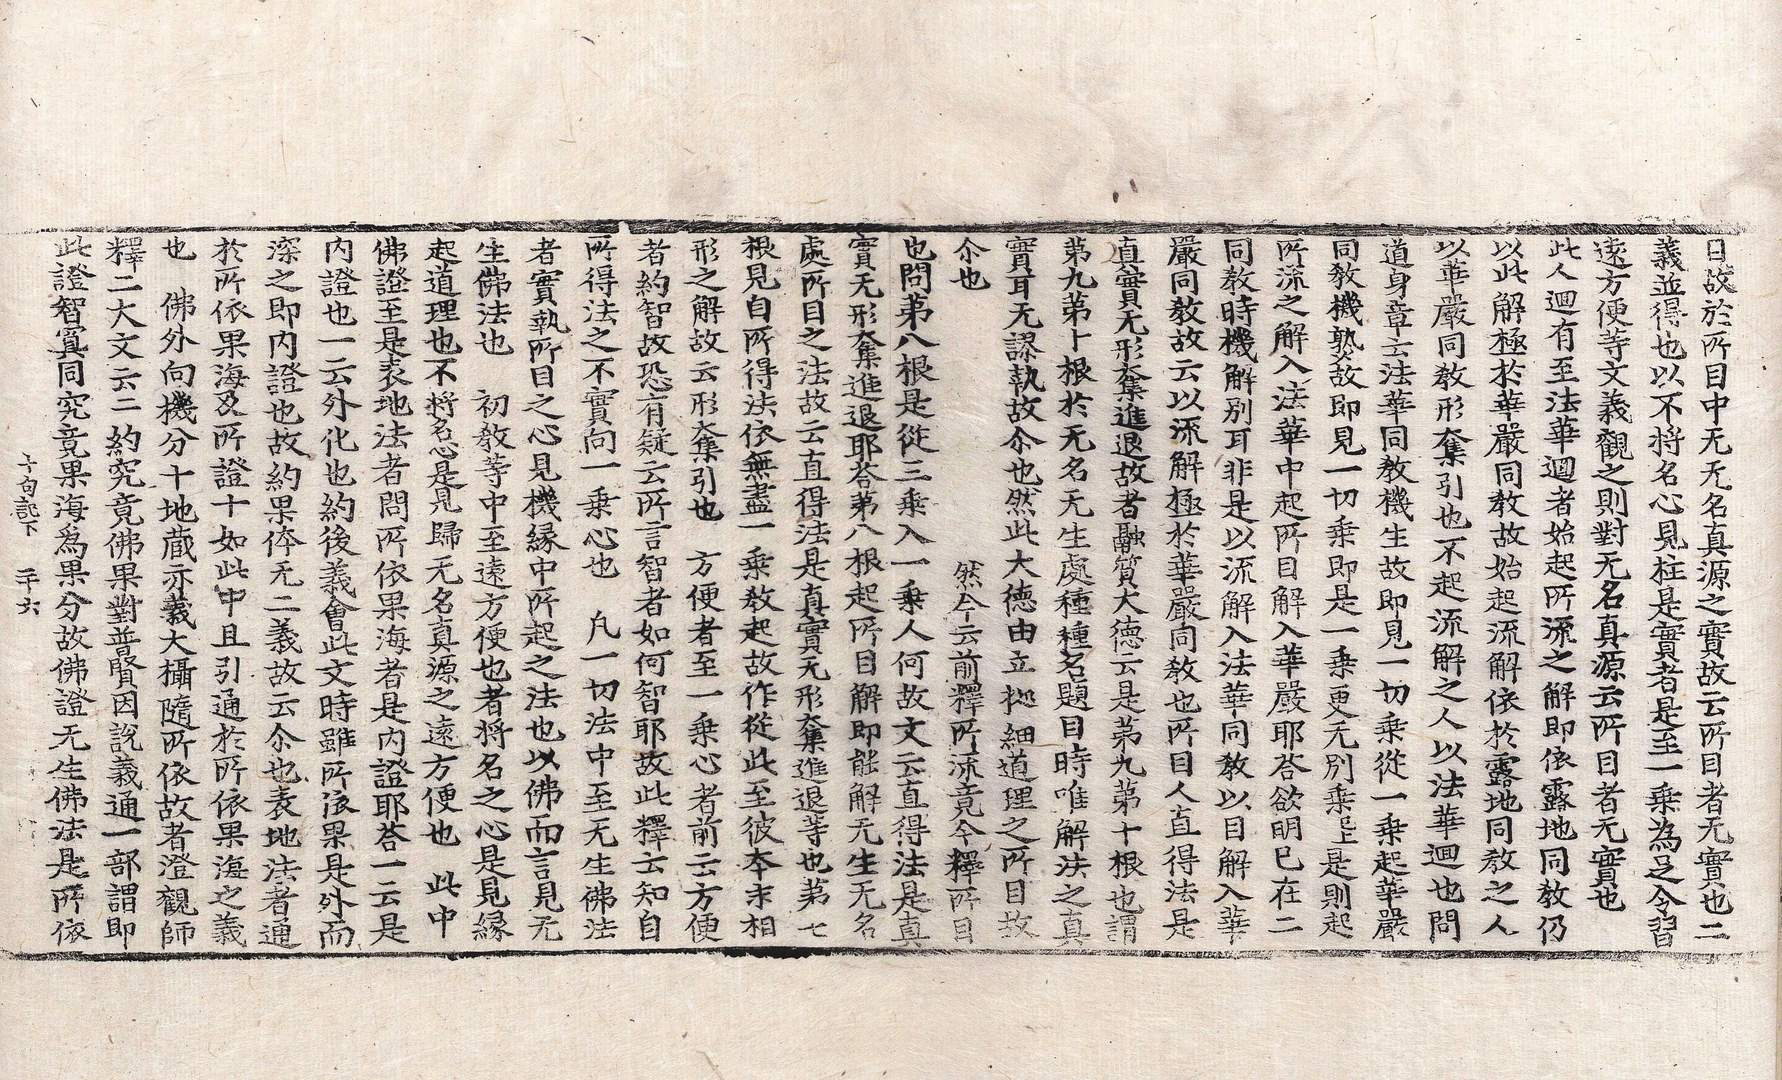 目故於所目中无无名真源之實故云所目者无實也二
義並得也以不將名心見柱是實者是至一乘為足令習
遠方便等文義觀之則對无名真源云所目者无實也
此人迴有至法華迴者始起所流之解即依露地同教仍
以此解極於華嚴同教故始起流解依於露地同教之人
以華嚴同教形奪引也不起流解之人以法華迴也問
道身章云法華同教機生故即見一切乘從一乘起華嚴
同教機熟故即見一切乘即是一乘更无別乘是則起
所流之解入法華中起所目解入華嚴耶荅欲明已在二
同教時機解別耳非是以流解入法華同教以目解入華
嚴同教故云以流解極於華嚴同教也所目人直得法是
直實无形奪進退故者融質大德云是第九第十根也謂
第九第十根於无名无生處種種名題目時唯解法之真
實耳无謬執故尒也然此大德由立極細道理之所目故
尒也 然今云前釋所流竟今釋所目
也問第八根是從三乘入一乘人何故文云直得法是真
實无形奪進退耶荅第八根起所目解即能解无生无名
處所目之法故云直得法是真實无形奪進退等也第七
根見自所得法依無盡一乘教起故作從此至彼本末相
形之解故云形奪引也 方便者至一乘心者前云方便
者約智故恐有疑云所言智者如何智耶故此釋云知自
所得法之不實向一乘心也 凡一切法中至无生佛法
者實執所目之心見機緣中所起之法也以佛而言見无
生佛法也 初教等中至遠方便也者將名之心是見緣
起道理也不將名心是見歸无名真源之遠方便也 此中
佛證至是表地法者問所依果海者是內證耶荅一云是
內證也一云外化也約後義會此文時雖所依果是外而
深之即內證也故約果体无二義故云尒也表地法者通
於所依果海及所證十如此中且引通於所依果海之義
也 佛外向機分十地蔵亦義大攝隨所依故者澄觀師
釋二大文云二約究竟佛果對普賢因說義通一部謂即
此證智冥同究竟果海爲果分故佛證无生佛法是所依
十句記下 二十六